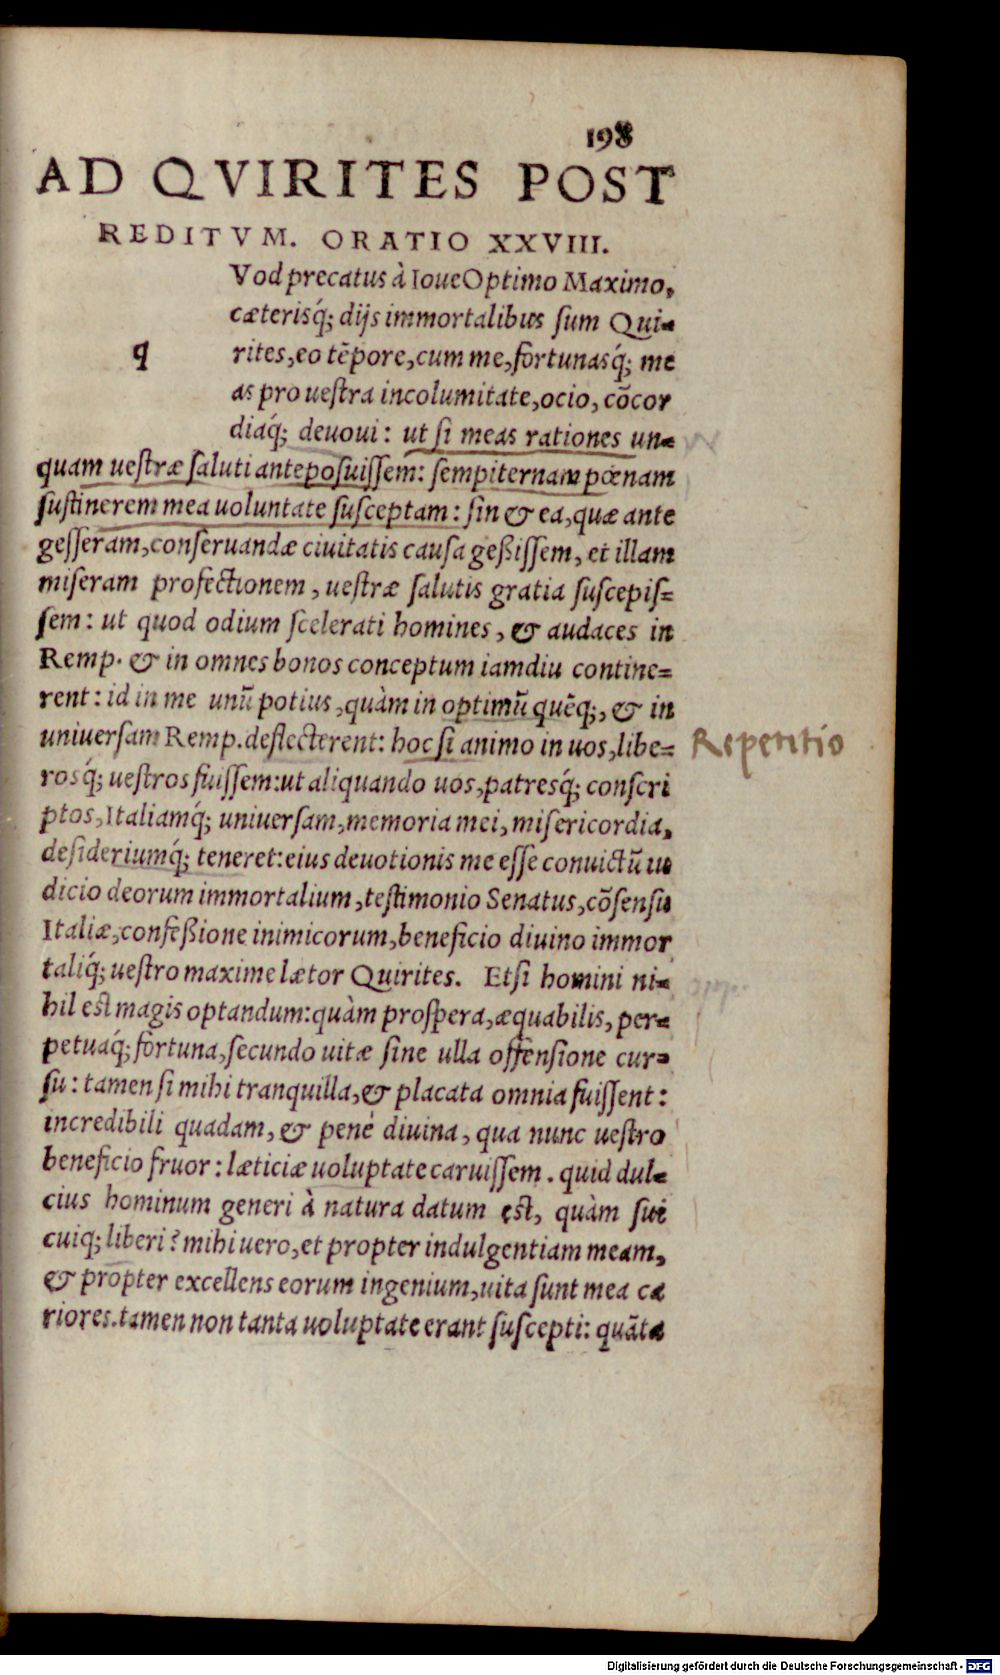 198
AD QVIRITES POST
REDITVM. ORATIO XXVIII.
Vod precatus à Ioue Optimo Maximo,
cæterisq́; dijs immortalibus sum Qui-
q rites, eo tēpore, cum me, fortunasq́; me
as pro uestra incolumitate, ocio, cōcor
diaq́; deuoui: ut si meas rationes un-
quam uestræ saluti anteposuissem: sempiternam pœnam
sustinerem mea uoluntate susceptam: sin & ea, quæ ante
gesseram, conseruandæ ciuitatis causa geßissem, et illam
miseram profectionem, uestræ salutis gratia suscepis-
sem: ut quod odium scelerati homines, & audaces in
Remp. & in omnes bonos conceptum iamdiu contine-
rent: id in me unū potius, quàm in optimū quēq;, & in
uniuersam Remp. deflecterent: hoc si animo in uos, libe-
Repetitio
rosq́; uestros fuissem: ut aliquando uos, patresq́; conscri
ptos, Italiamq́; uniuersam, memoria mei, misericordia,
desideriumq́; teneret: eius deuotionis me esse conuictū iu
dicio deorum immortalium, testimonio Senatus, cōsensu
Italiæ, confeßione inimicorum, beneficio diuino immor
taliq́; uestro maxime lætor Quirites. Etsi homini ni-
hil est magis optandum: quàm prospera, æquabilis, per-
petuaq́; fortuna, secundo uitæ sine ulla offensione cur-
su: tamen si mihi tranquilla, & placata omnia fuissent:
incredibili quadam, & penè diuina, qua nunc uestro
beneficio fruor: læticiæ uoluptate caruissem. quid dul-
cius hominum generi à natura datum est, quàm sui
cuiq; liberi? mihi uero, et propter indulgentiam meam,
& propter excellens eorum ingenium, uita sunt mea ca
riores. tamen non tanta uoluptate erant suscepti: quāta
Digitalisierung gefördert durch die Deutsche Forschungsgemeinschaft - DFG